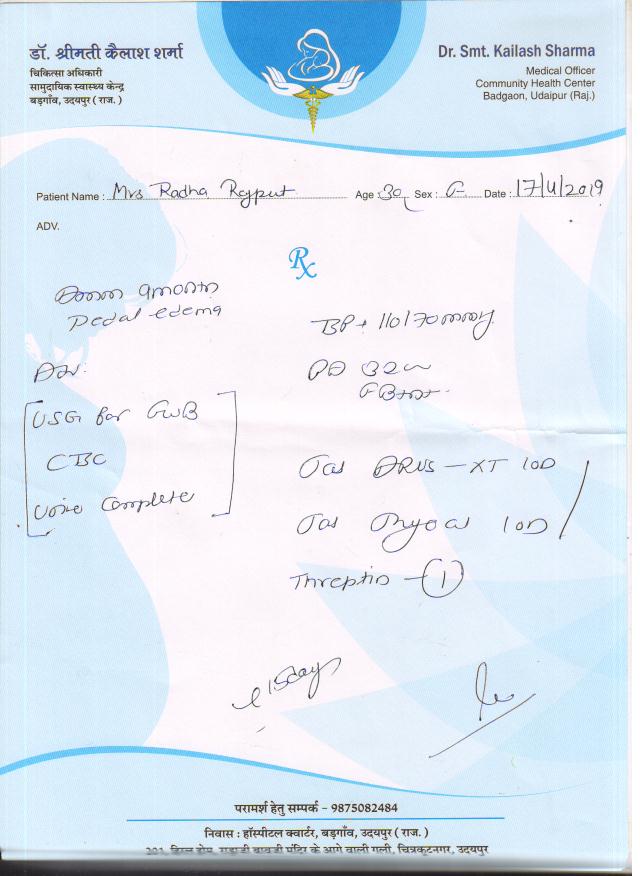 डॉ. श्रीमती कैलाश शर्मा
चिकित्सा अधिकारी
सामुदायिक स्वास्थ्य केन्द्र
बड़गाँव, उदयपुर ( राज. )
Dr. Smt. Kailash Sharma
Medical Officer
Community Health Center
Badgaon, Udaipur (Raj.)
Patient Name : Mrs Radha Rajput Age : 30 Sex : F Date : 17/4/2019
ADV.
Rx
9month
Pedal edema
BP 110/70mmHg
Adv:
USG for FWB
CBC
Urine Complete
Tab - XT 10D
Tab 10D
Threptin - 1
15days
परामर्श हेतु सम्पर्क - 9875082484
निवास : हॉस्पीटल क्वार्टर, बड़गाँव, उदयपुर ( राज. )
मंदिर के आगे वाली गली, चित्रकूटनगर, उदयपुर